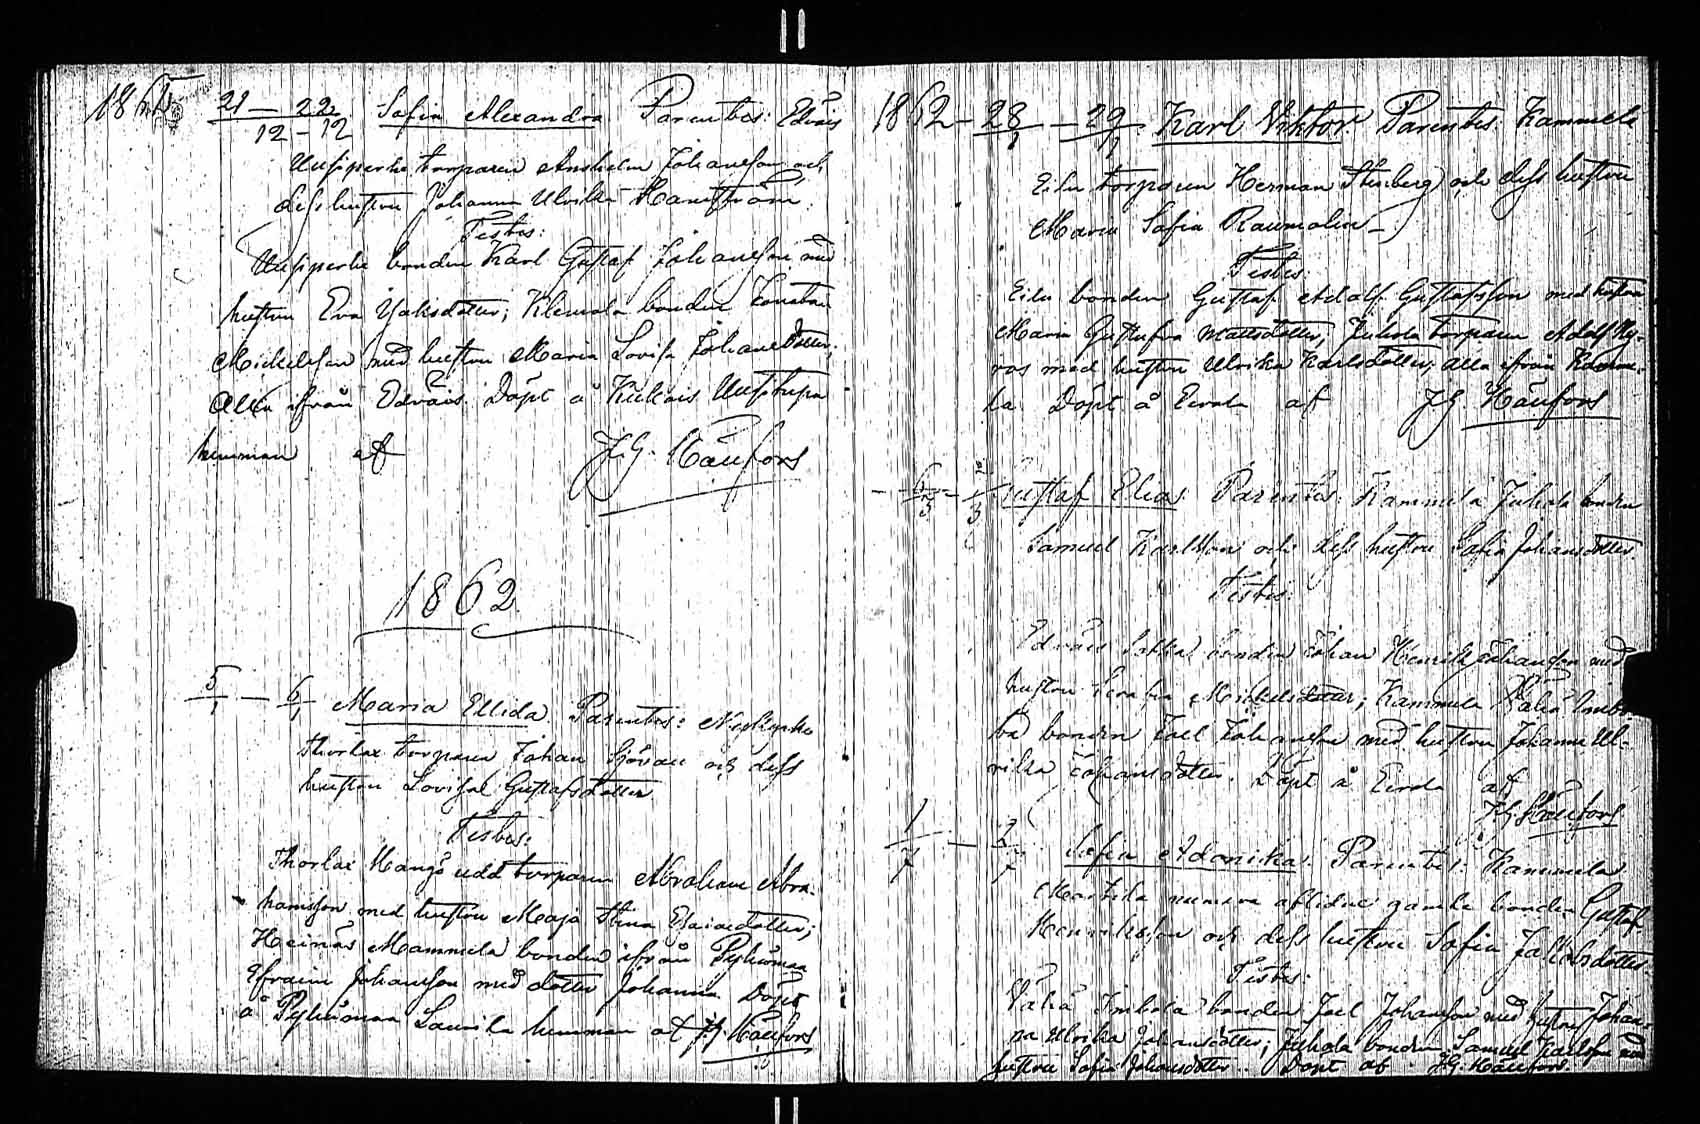 1861 21/12 – 22/12 Sofia Alexandra Parentes: Edväis
Uusiperhe torparen Anshelm Johansson och
dess hustru Johanna Ulrika
Testes:
Uusiperhe bonden Karl Gustaf Johansson med
hustrun Eva Jaksdotter; Klemola bonden
Mickelsson med hustru Maria Lovisa Johansdotter;
Alla ifrån Edväis. Döpt å Kukois
hemman af J.G. Käufors
1862
5/1 – 6/1 Maria Ellida Parentes:
Thorlax torparen Johan och dess
hustru Lovisa Gustafsdotter
Testes:
Thorlax udd torparen Abraham Abra-
hamsson med hustru Maja Stina Esaiaedotter;
Heinäs Mammela bonden ifrån Pyhämaa
Efraim Johansson med dotter Johanna Döpt
å Pyhämaa Laurila hemman af J.G. Käufors
1862 – 28/1 – 29/1 Karl Viktor. Parentes: Kammela
Eilu torparen Herman Stenberg och dess hustru
Maria Sofia Raumolin –
Testes:
Eilu bonden Gustaf Adolf Gustafsson med hustru
Maria Gustafva Mattsdotter, Juhola torparen Adolf Ny-
ros med hustru Ulrika Karlsdotter; alla ifrån Kamme-
la Döpt å Eirola af J.G. Käufors
– 6/3 – /3 Gustaf Elias. Parentes: Kammela Juhola bonden
Samuel Karlsson och dess hustru Sofia Johansdotter
Testes:
Edväis bonden Johan Henrik Johansson med
hustru Mickelsdotter; Kammela Vähä Imbo-
la bonden Joel Johansson med hustru Johanna Ul-
rika Johansdotter. Döpt å Eirola af
J.G. Käufors
1/7 – 2/7 Sofia Adamika. Parentes: Kammela
Martila numera aflidne gamla bonden Gustaf
Henriksson och dess hustru Sofia Jakobsdotter
Testes:
Vähä Imbola bonden Joel Johansson med hustru Johan-
na Ulrika Johansdotter; Juhola bonden Samuel Karlsson med
hustru Sofia Johansdotter. Döpt af J.G. Käufors.